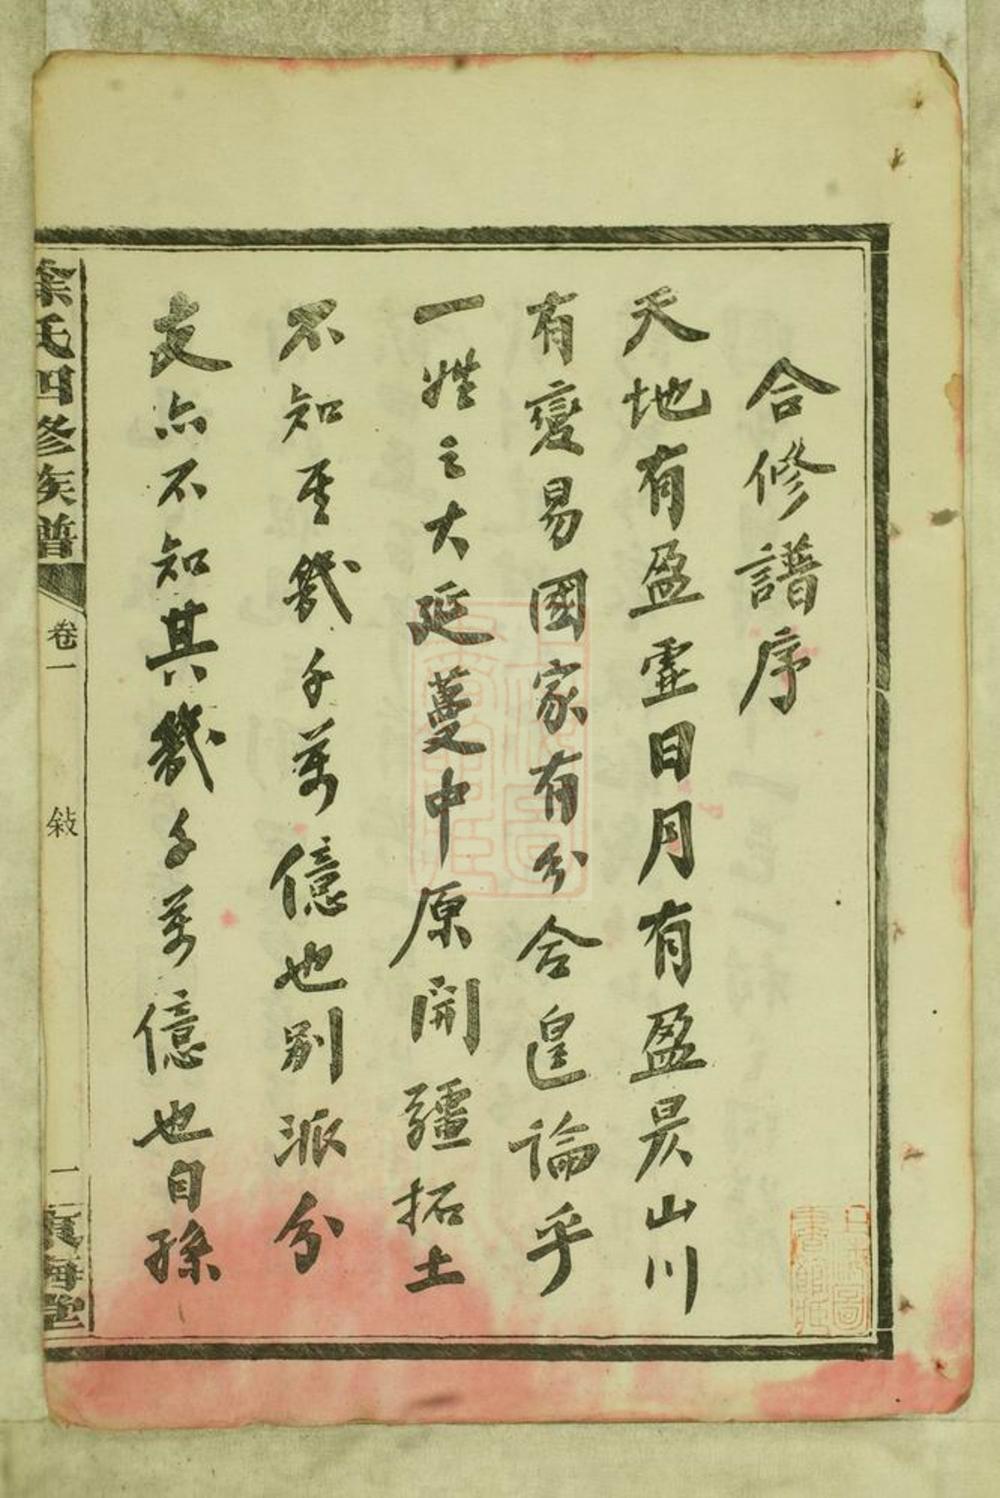 合修譜序
天地有盈虛日月有盈昃山川
有變易國家有分合遑論乎
一姓之大延蔓中原開疆拓土
不知其幾千萬億也別派分
支亦不知其幾千萬億也自孫
徐氏四修族譜
卷一
敍
一
東海堂
上海圖書館藏